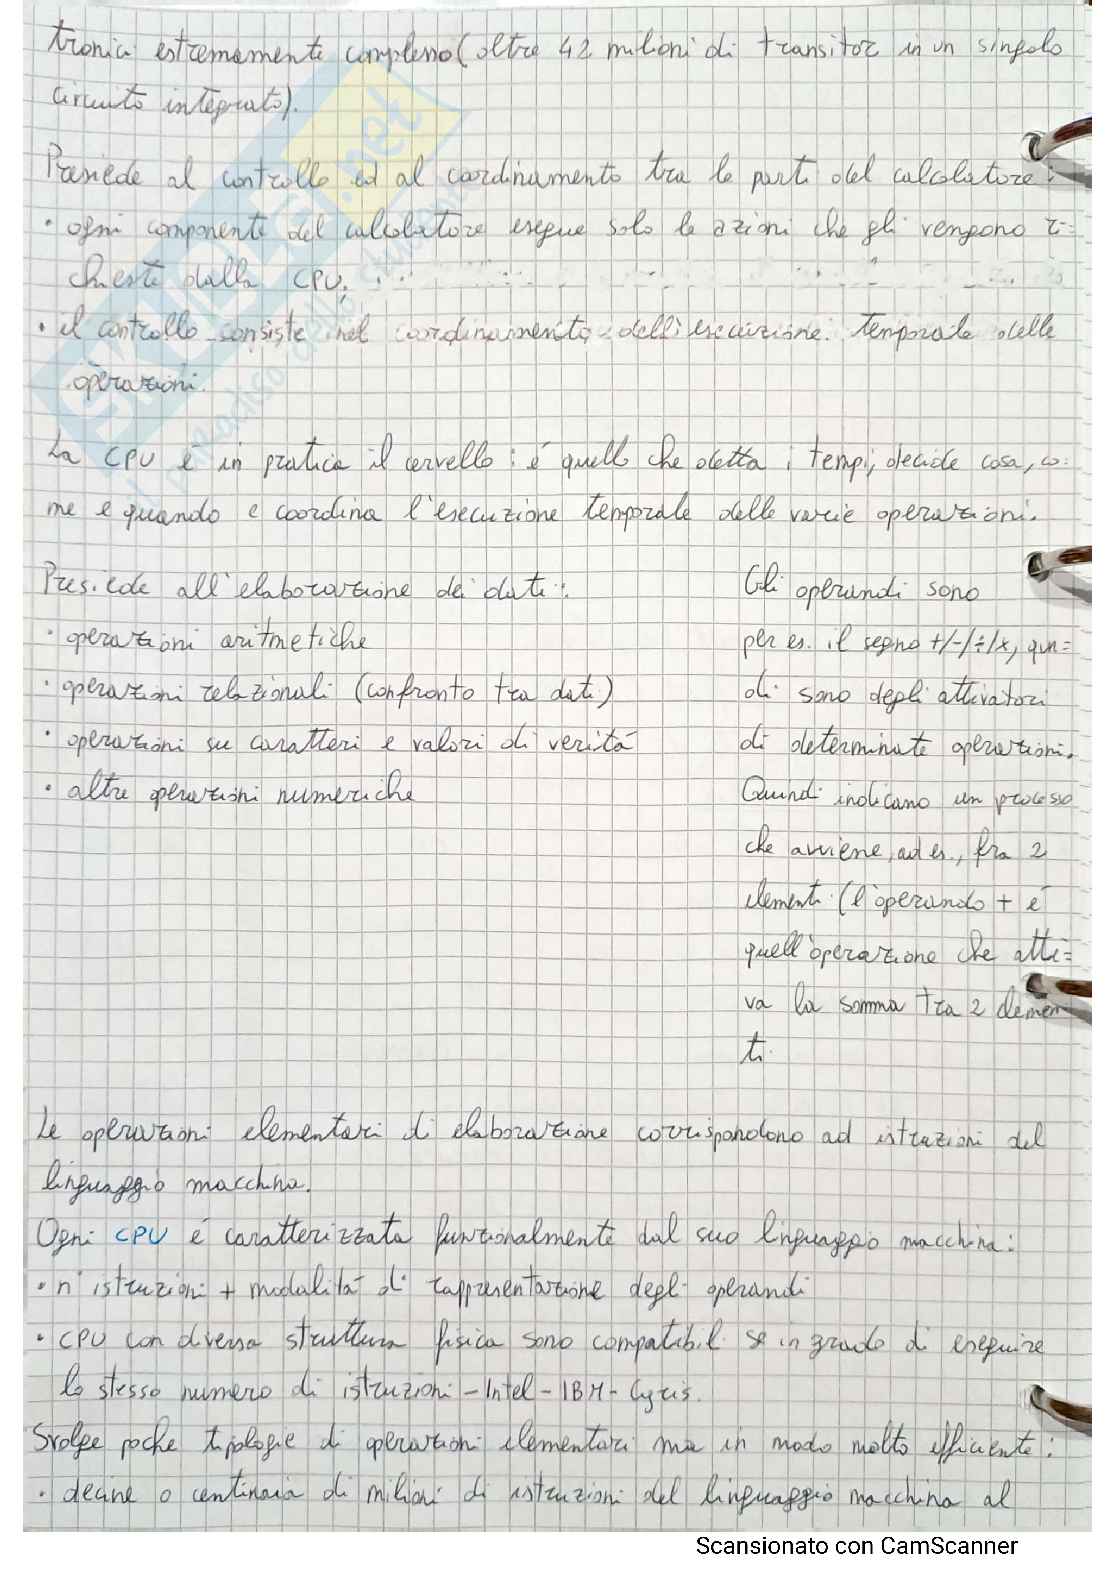 tronica estremamente complesso (oltre 42 milioni di transitor in un singolo
circuito integrato).
Presiede al controllo ed al coordinamento tra le parti del calcolatore:
• ogni componente del calcolatore esegue solo le azioni che gli vengono ri=
chieste dalla CPU;
• il controllo consiste nel coordinamento dell'esecuzione temporale delle
operazioni.
La CPU é in pratica il cervello: é quello che detta i tempi, decide cosa, co=
me e quando e coordina l'esecuzione temporale delle varie operazioni.
Presiede all'elaborazione dei dati:
• operazioni aritmetiche
• operazioni relazionali (confronto tra dati)
• operazioni su caratteri e valori di veritá
• altre operazioni numeriche
Gli operandi sono
per es. il segno +/-/÷/x, qui=
di sono degli attivatori
di determinate operazioni.
Quindi indicano un processo
che avviene, ad es., fra 2
elementi (l'operando + é
quell'operazione che atti=
va la somma tra 2 elemen
ti.
Le operazioni elementari di elaborazione corrispondono ad istruzioni del
linguaggio macchina.
Ogni CPU é caratterizzata funzionalmente dal suo linguaggio macchina:
• n° istruzioni + modalitá di rappresentazione degli operandi
• CPU con diversa struttura fisica sono compatibili se in grado di eseguire
lo stesso numero di istruzioni - Intel - IBM - Cyris.
Svolge poche tipologie di operazioni elementari ma in modo molto efficiente:
• decine o centinaia di milioni di istruzioni del linguaggio macchina al
SKUOLA.net
il paradiso dello studente
Scansionato con CamScanner